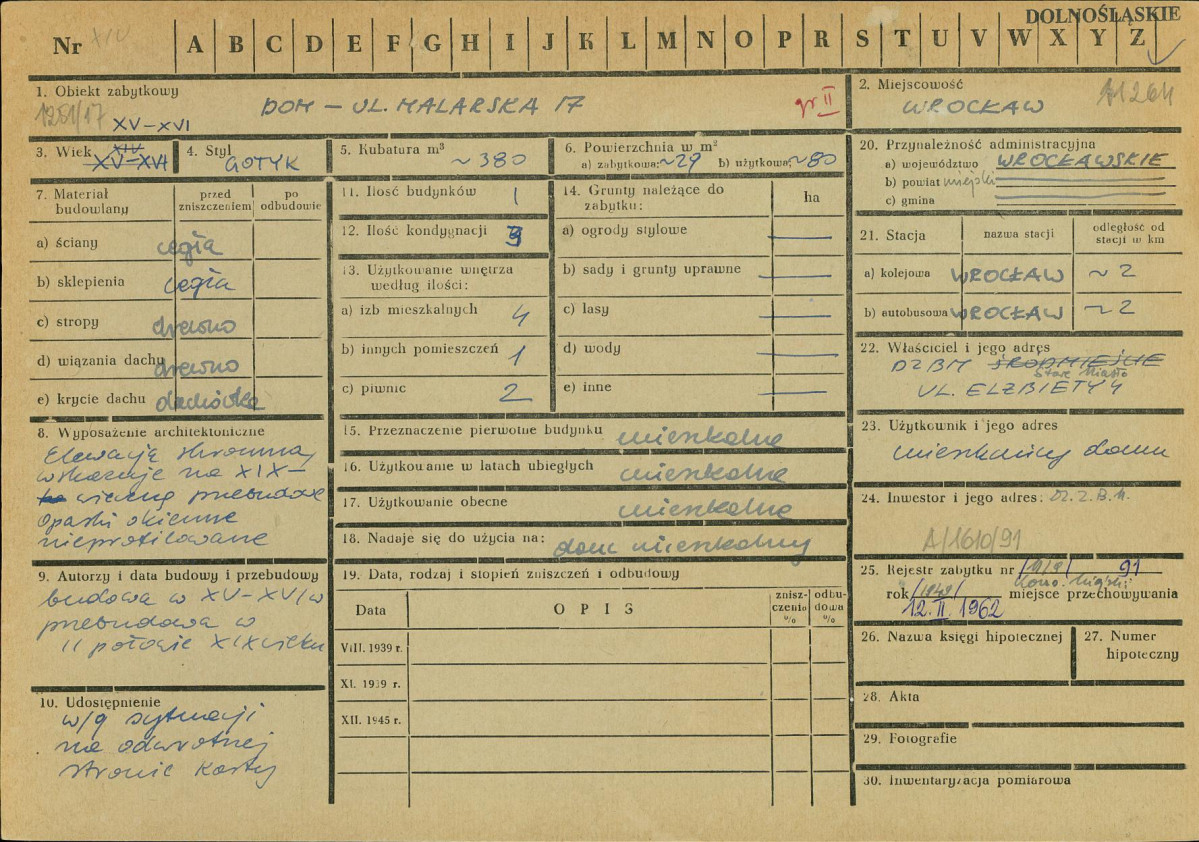 DOLNOŚLĄSKIE
Nr XIV A B C D E F G H I J K L M N O P R S T U V W X Y Z
1. Obiekt zabytkowy
DOM – UL. MALARSKA 17
gr II
XV–XVI
2. Miejscowość
WROCŁAW
3. Wiek XIV
XV–XVI
4. Styl GOTYK
5. Kubatura m³
~380
6. Powierzchnia w m²
a) zabytkowa: ~29 b) użytkowa: ~80
7. Materiał budowlany
przed zniszczeniem
po odbudowie
a) ściany cegła
b) sklepienia cegła
c) stropy drewno
d) wiązania dachu drewno
e) krycie dachu dachówka
8. Wyposażenie architektoniczne
Elewacja skromna
wskazuje na XIX–
wieczną przebudowę
opaski okienne
nieprofilowane
9. Autorzy i data budowy i przebudowy
budowa w XV–XVI w
przebudowa w
II połowie XIX wieku
10. Udostępnienie
w/g sytuacji
na odwrotnej
stronie karty
11. Ilość budynków 1
12. Ilość kondygnacji 3
13. Użytkowanie wnętrza
według ilości:
a) izb mieszkalnych 4
b) innych pomieszczeń 1
c) piwnic 2
14. Grunty należące do
zabytku:
ha
a) ogrody stylowe —
b) sady i grunty uprawne —
c) lasy —
d) wody —
e) inne —
15. Przeznaczenie pierwotne budynku mieszkalne
16. Użytkowanie w latach ubiegłych mieszkalne
17. Użytkowanie obecne mieszkalne
18. Nadaje się do użycia na: dom mieszkalny
19. Data, rodzaj i stopień zniszczeń i odbudowy
Data
OPIS
zniszczenie %
odbudowa %
VIII. 1939 r.
XI. 1939 r.
XII. 1945 r.
20. Przynależność administracyjna
a) województwo WROCŁAWSKIE
b) powiat miejski
c) gmina
21. Stacja
nazwa stacji
odległość od
stacji w km
a) kolejowa WROCŁAW ~2
b) autobusowa WROCŁAW ~2
22. Właściciel i jego adres
DZBM ŚRODMIEŚCIE
Stare Miasto
UL. ELŻBIETY 4
23. Użytkownik i jego adres
mieszkańcy domu
24. Inwestor i jego adres: Dz.Z.B.M.
A/1610/91
25. Rejestr zabytku nr 91
rok miejsce przechowywania
12. II. 1962
26. Nazwa księgi hipotecznej
27. Numer
hipoteczny
28. Akta
29. Fotografie
30. Inwentaryzacja pomiarowa